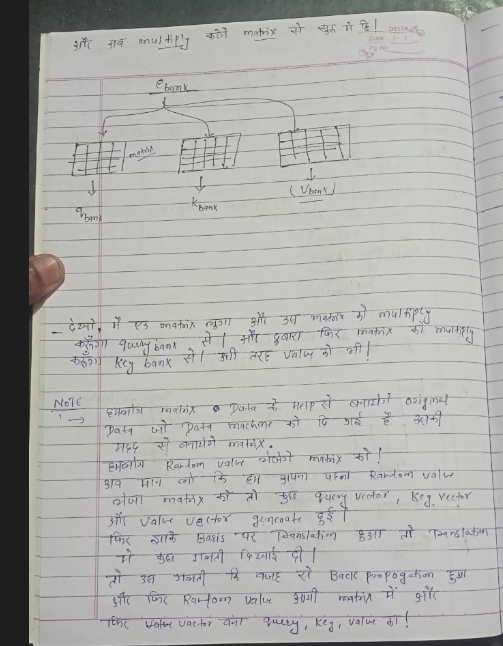 और अब multiply करेंगे matrix से शुरू में ही!
Date
Pg No
e bank
matrix
q bank
k bank
(V bank)
- देखो, मैं एक matrix लूगा और उस matrix को multiply
करूँगा query bank से। और दुबारा फिर matrix को multiply
करूँगा key bank से। उसी तरह value को भी!
Note
:→ हमलोग matrix Data के Help से बनायेगे original
Data जो Data machine को दि गई है उसकी
मदद से बनायेगे matrix.
हमलोग Random value लेंगे matrix को!
अब मान लो कि हम अपना पहला Random value
लेंगा matrix को तो कुछ query vector, key vector
और value vector generate हुई।
फिर इसके Basis पर Translation हुआ तो Translation
में कुछ गलती दिखाई दी।
तो उस गलती कि वजह से Back propogation हुआ
और फिर Random value आयी matrix में और
फिर vector बना query, key, value का!